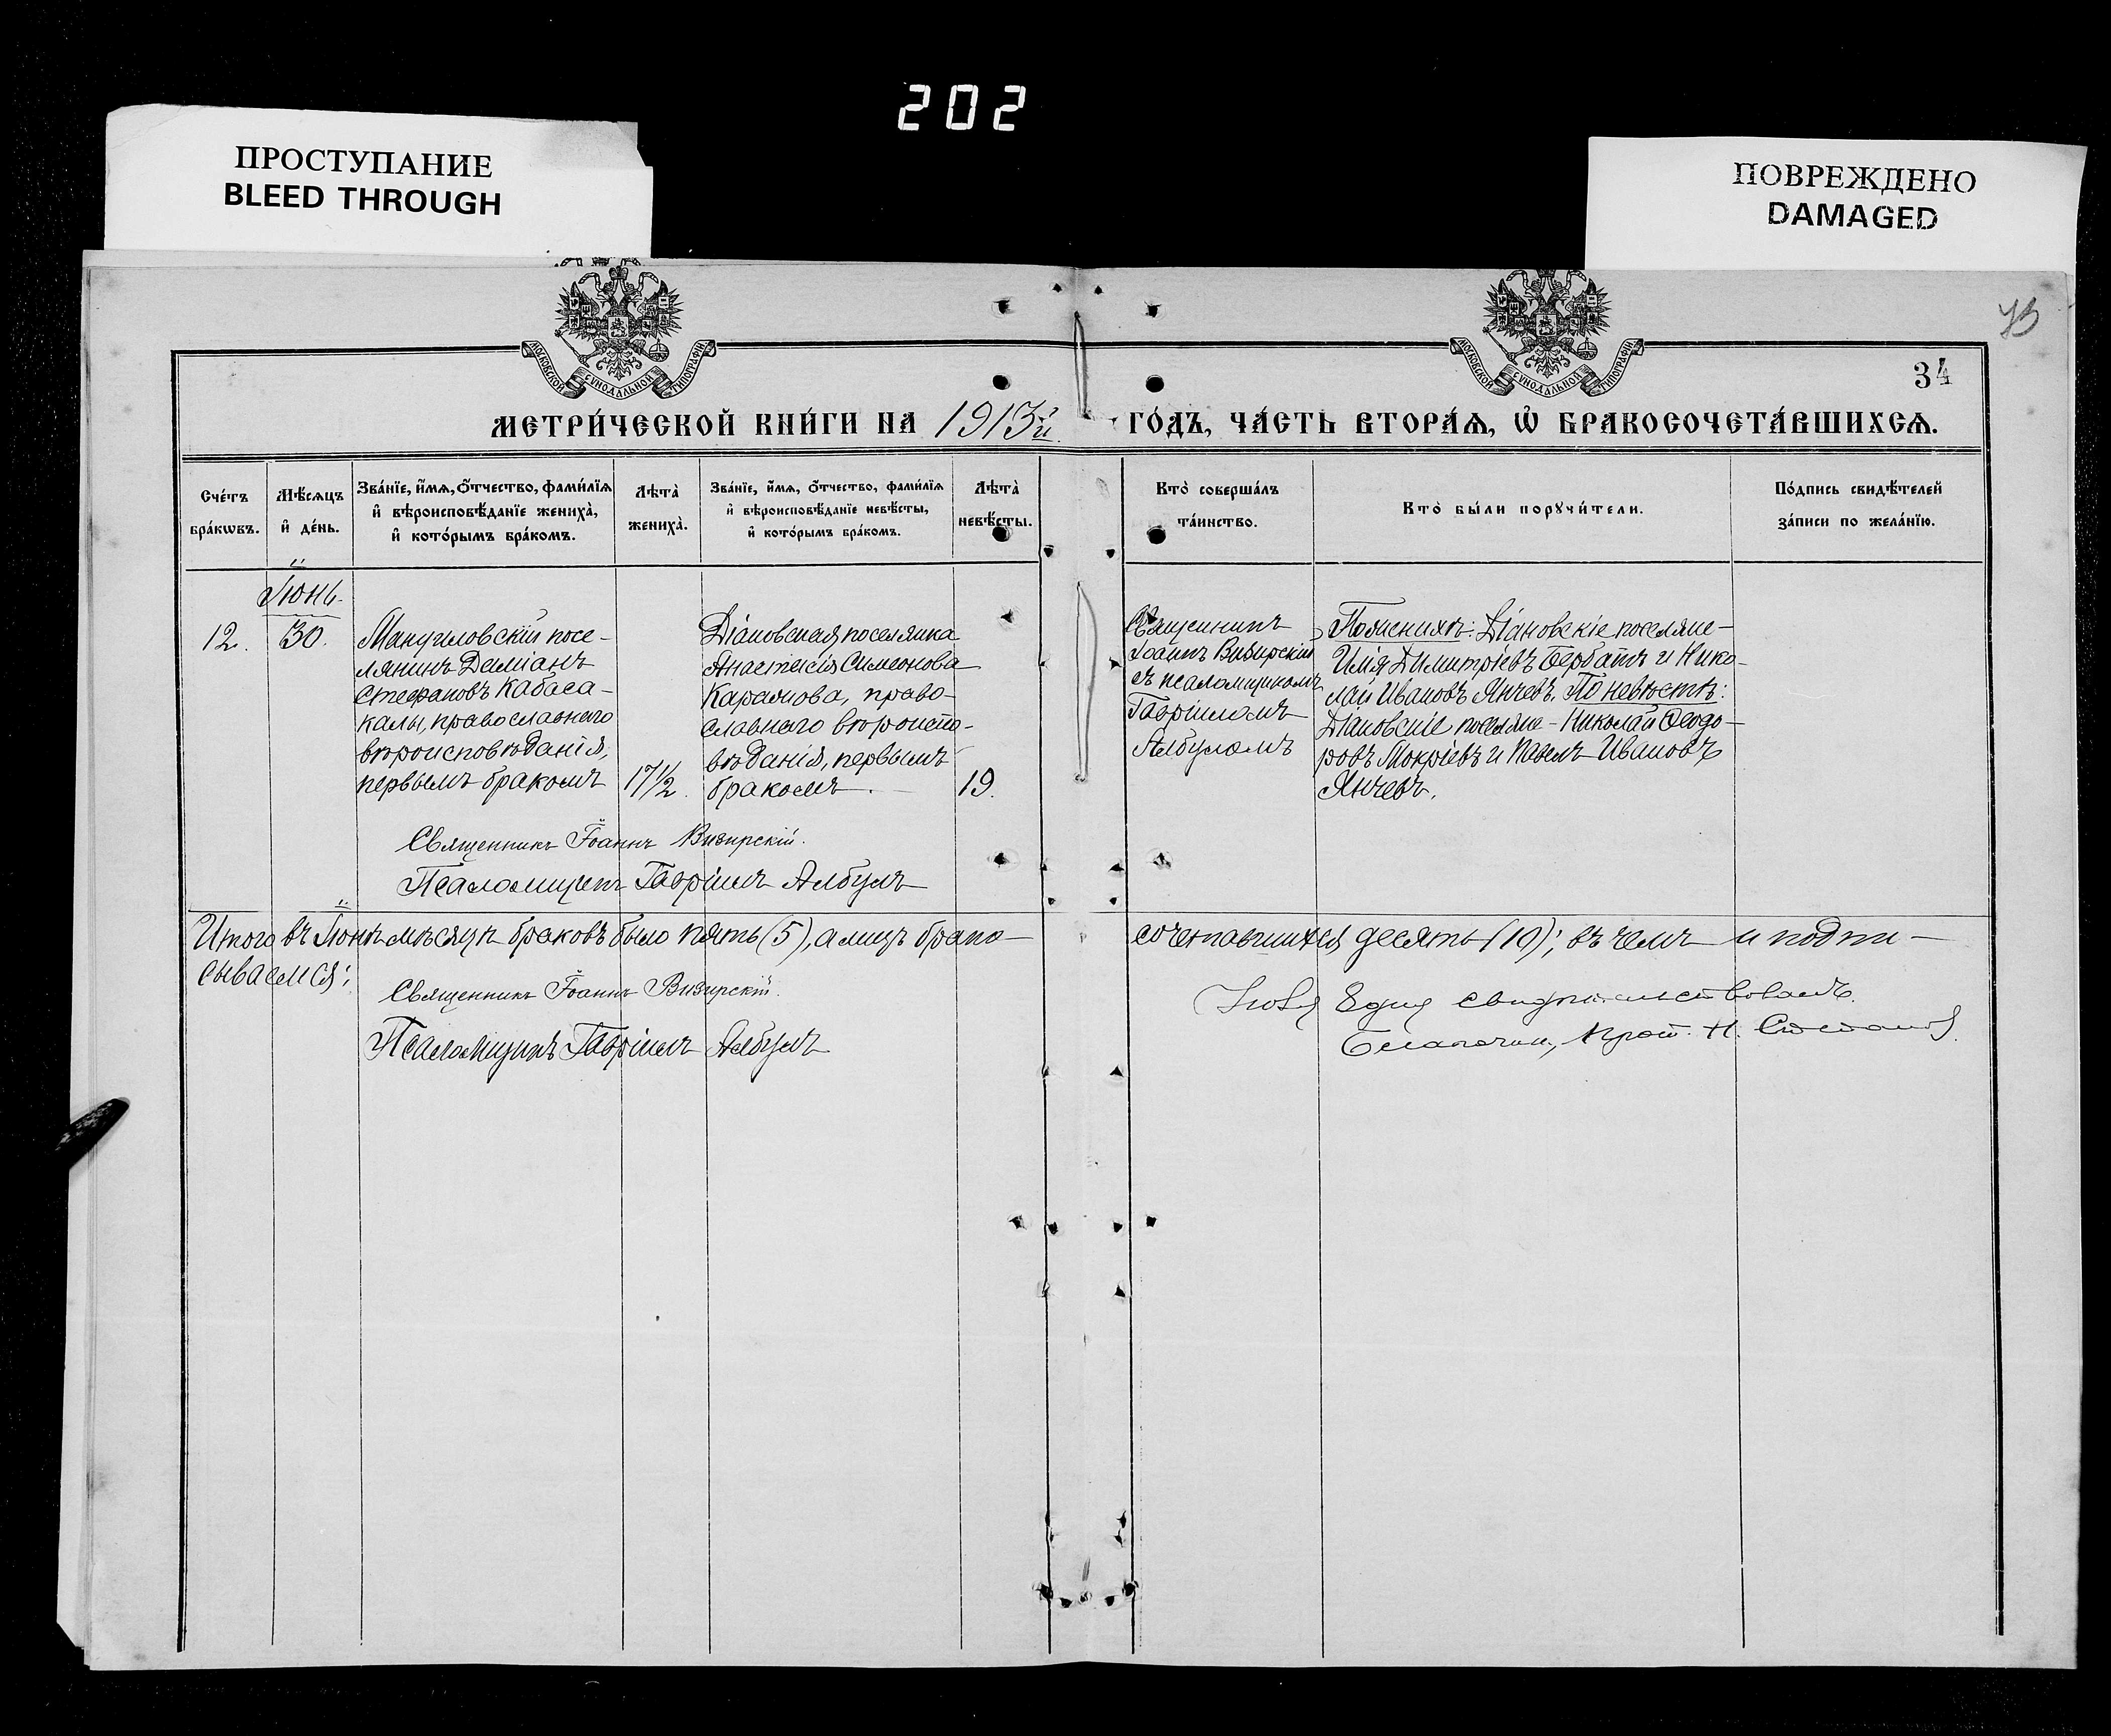 202
ПРОСТУПАНИЕ
BLEED THROUGH
ПОВРЕЖДЕНО
DAMAGED
МОСКОВСКОЙ СѴНОДАЛЬНОЙ ТИПОГРАФІИ
МОСКОВСКОЙ СѴНОДАЛЬНОЙ ТИПОГРАФІИ
34
МЕТРИ́ЧЕСКОЙ КНИ́ГИ НА 1913й ГО́ДЪ, ЧА́СТЬ ВТОРА́Ѧ, Ѡ҆ БРАКОСОЧЕТА́ВШИХСѦ.
Сче́тъ
бра́кѡвъ.
Мѣ́сѧцъ
и҆ де́нь.
Зва́нїе, и҆́мѧ, ѻ҆́тчество, фами́лїѧ
и҆ вѣроисповѣ́данїе жениха̀,
и҆ кото́рымъ бра́комъ.
Лѣта̀
жениха̀.
Зва́нїе, и҆́мѧ, ѻ҆́тчество, фами́лїѧ
и҆ вѣроисповѣ́данїе невѣ́сты,
и҆ кото́рымъ бра́комъ.
Лѣта̀
невѣ́сты.
Кто̀ соверша́лъ
та́инство.
Кто̀ бы́ли порꙋчи́тели.
По́дпись свидѣ́телей
за́писи по жела́нїю.
Іюнь.
12.
30.
Манугиловскій посе-
лянинъ Даміанъ
Стефановъ Кабаса-
калы, православнаго
вѣроисповѣданія,
первымъ бракомъ
17½.
Діановская поселянка
Анастасія Симеонова
Караянова, право-
славнаго вѣроиспо-
вѣданія, первымъ
бракомъ.
19.
Священникъ
Іоаннъ Визирскій
съ псаломщикомъ
Гавріиломъ
Албуломъ
По женихѣ: Діановскіе поселяне-
Илія Димитріевъ Бербатъ и Нико-
лай Ивановъ Янчевъ. По невѣстѣ:
Діановскіе поселяне - Николай Ѳеодо-
ровъ Мокріевъ и Павелъ Ивановъ
Янчевъ.
Священникъ Іоаннъ Визирскій.
Псаломщикъ Гавріилъ Албулъ
Итого въ Іюнѣ мѣсяцѣ браковъ было пять (5), а лицъ брако-сочетавшихся десять (10); въ чемъ и подпи-
сываемся:
Священникъ Іоаннъ Визирскій.
Псаломщикъ Гавріилъ Албулъ
свидѣтельствовалъ.
Благочин., Прот. Н. Стоянов.